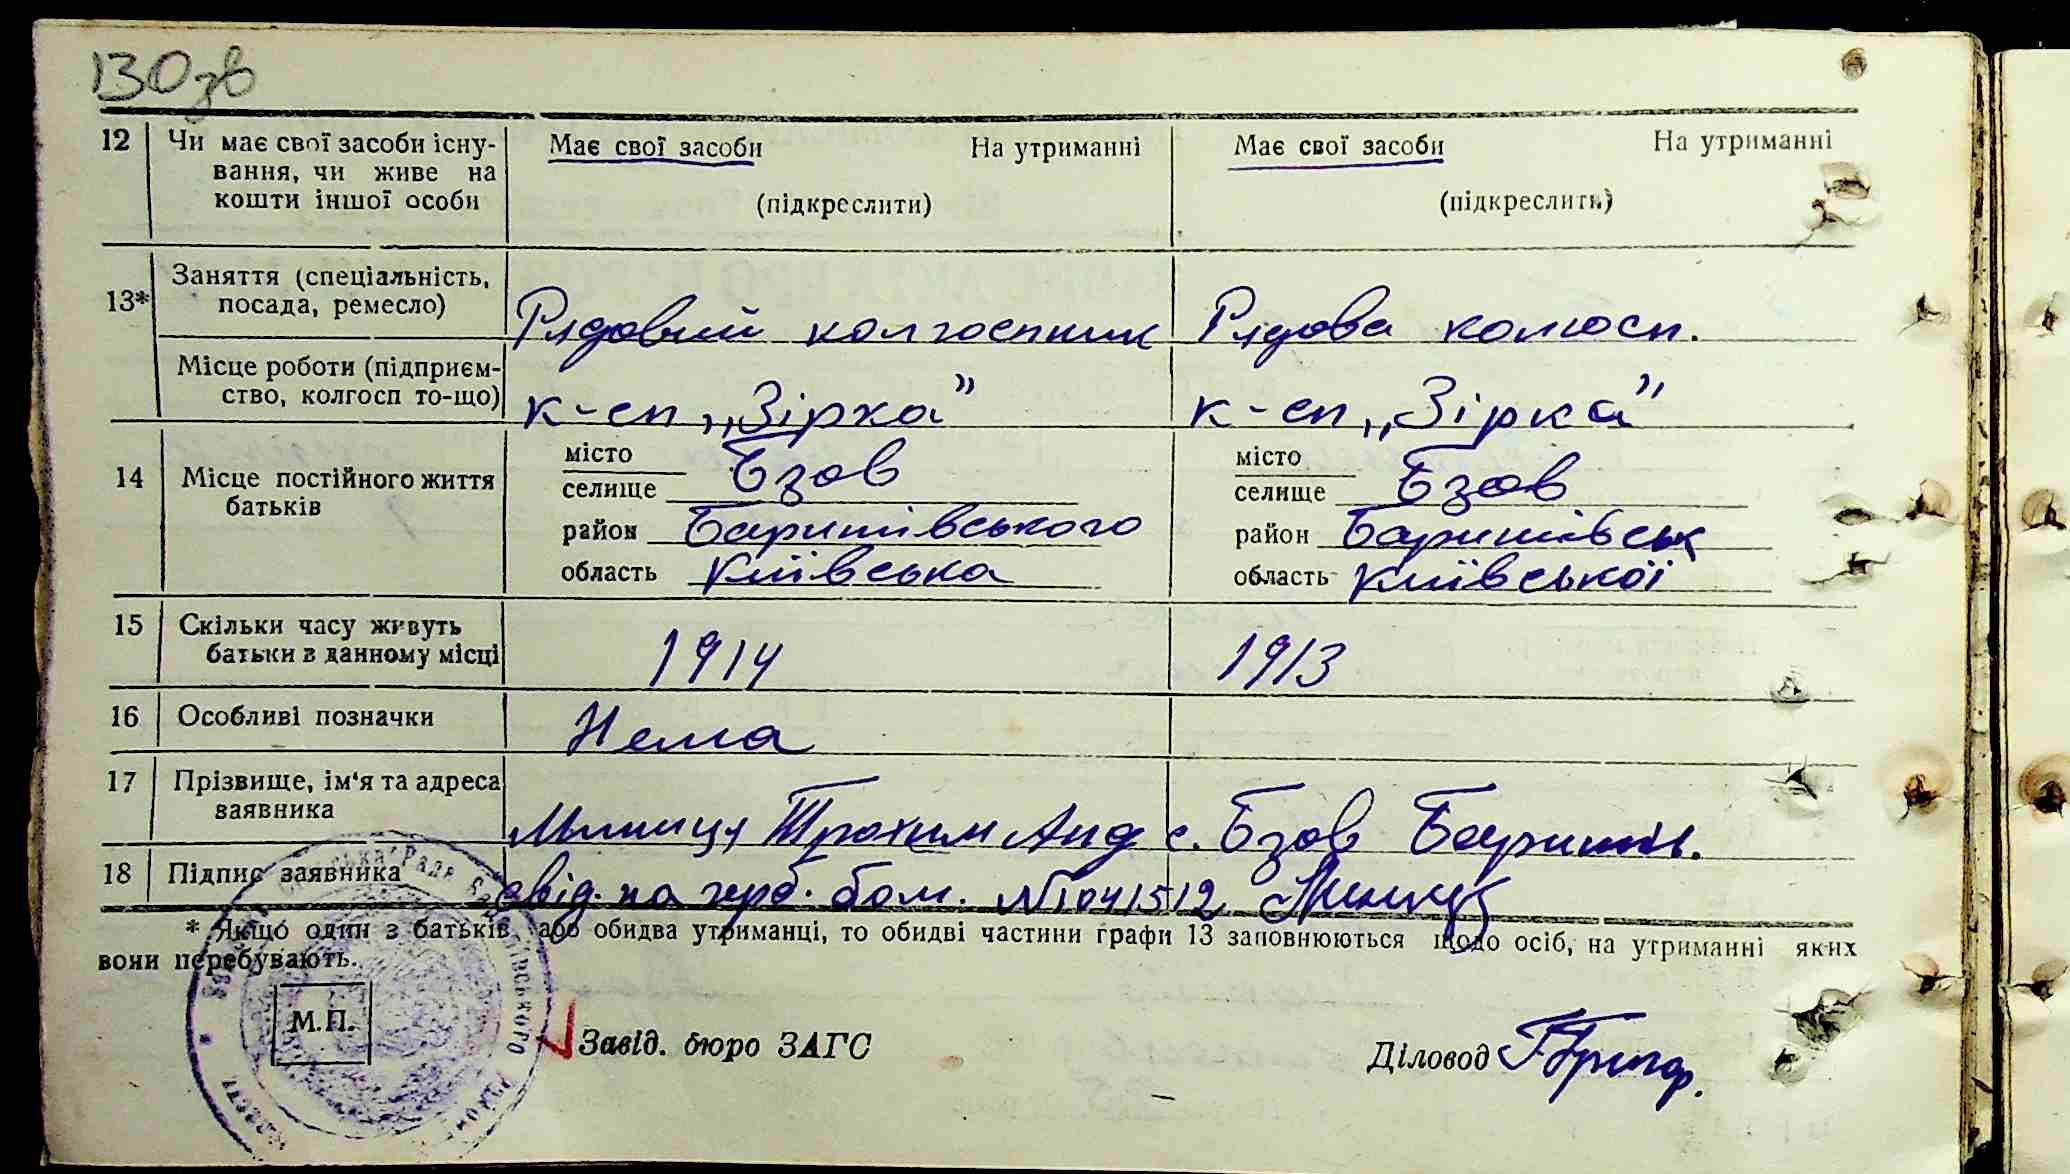 130зв
12 Чи має свої засоби існу- Має свої засоби На утриманні Має свої засоби На утриманні
вання, чи живе на
кошти іншої особи (підкреслити) (підкреслити)
Заняття (спеціальність,
13* посада, ремесло) Рядовий колгоспник Рядова колгосп.
Місце роботи (підприєм-
ство, колгосп то-що) к-сп „Зірка" к-сп „Зірка"
місто місто
14 Місце постійного життя селище Бзов селище Бзов
батьків район Баришівського район Баришівськ
область Київська область Київської
15 Скільки часу живуть
батьки в данному місці 1914 1913
16 Особливі позначки Нема
17 Прізвище, ім'я та адреса
заявника Трохим Анд с. Бзов Баришів.
18 Підпис заявника свід. на №1041512
* Якщо один з батьків, або обидва утриманці, то обидві частини графи 13 заповнюються щодо осіб, на утриманні яких
вони перебувають.
М.П.
Завід. бюро ЗАГС Діловод